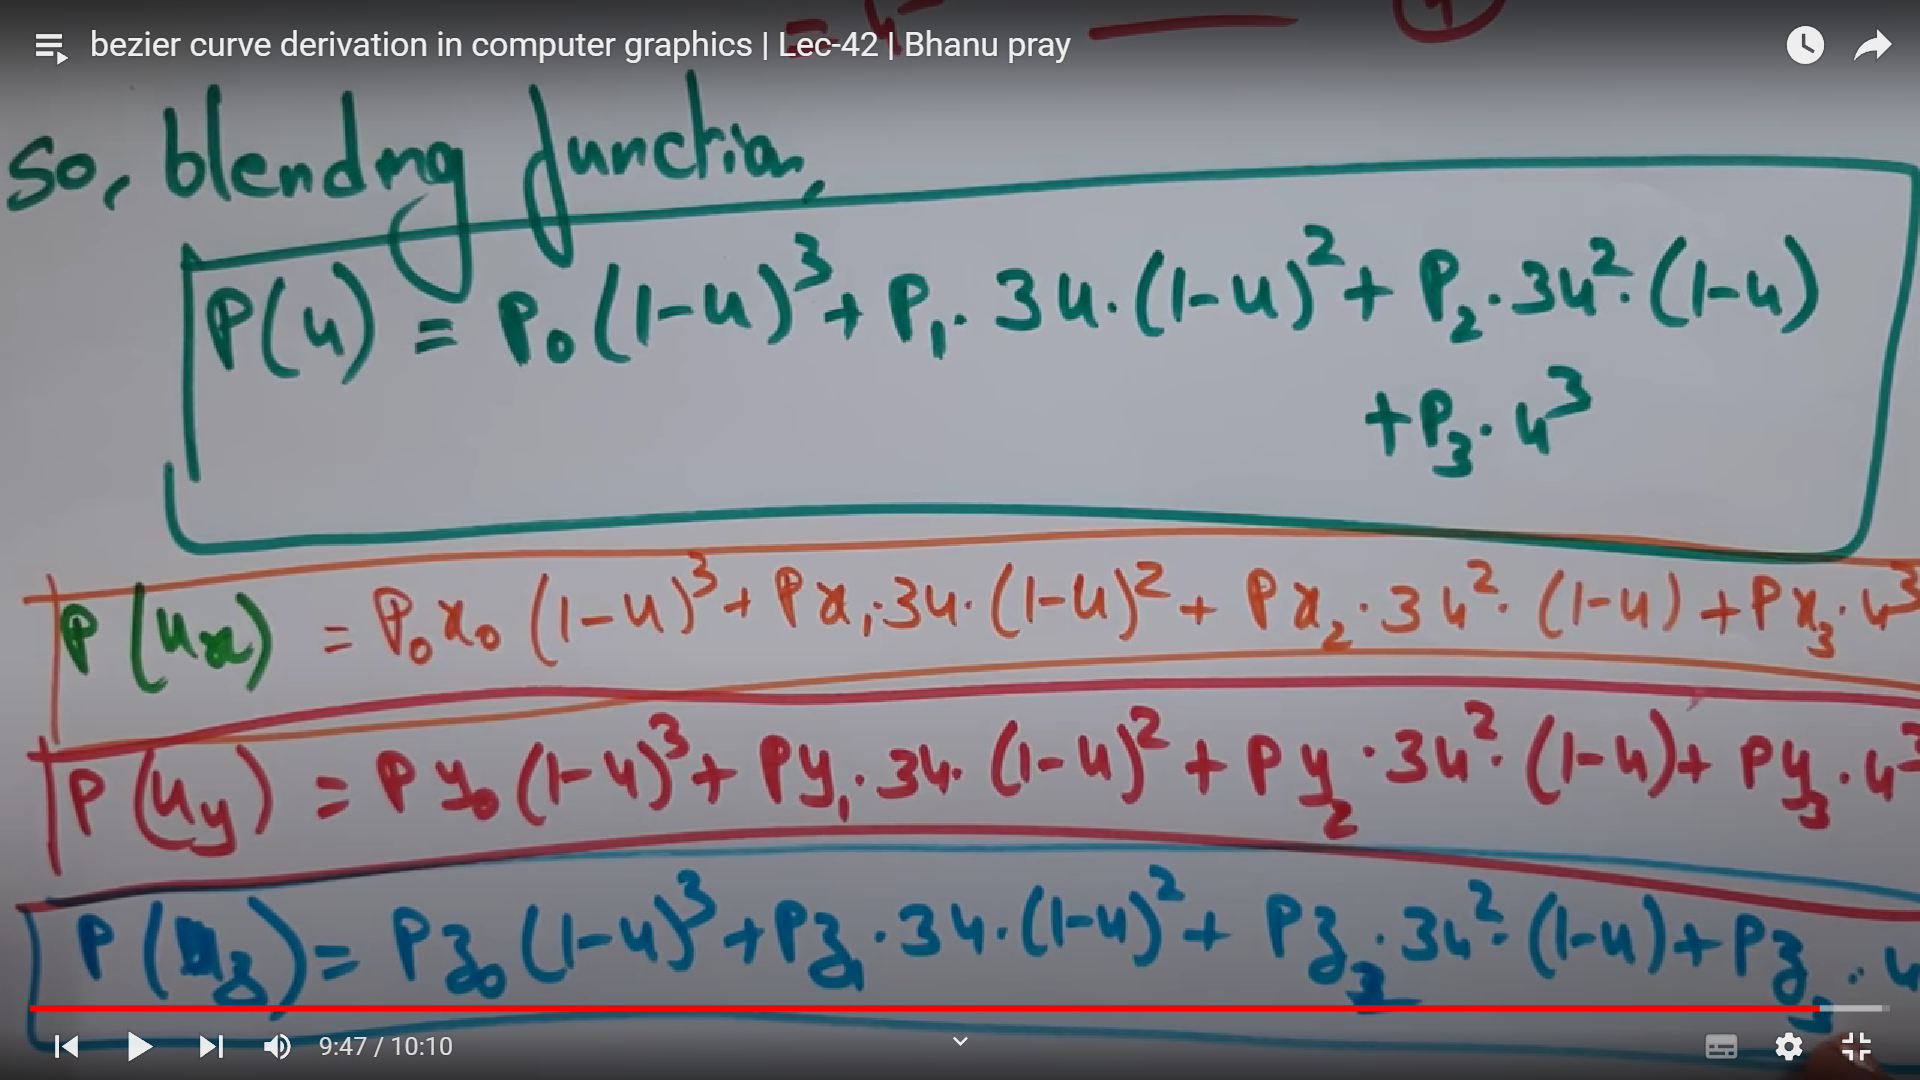 bezier curve derivation in computer graphics | Lec-42 | Bhanu pray
So, blending function,
P(u) = P₀(1-u)³ + P₁. 3u.(1-u)² + P₂.3u².(1-u)
+P₃.u³
P(uₓ) = P₀x₀(1-u)³ + Px₁.3u.(1-u)² + Px₂.3u².(1-u) + Px₃.u³
P(u_y) = Py₀(1-u)³ + Py₁.3u.(1-u)² + Py₂.3u².(1-u) + Py₃.u³
P(u_z) = Pz₀(1-u)³ + Pz₁.3u.(1-u)² + Pz₂.3u².(1-u) + Pz₃.u
9:47 / 10:10